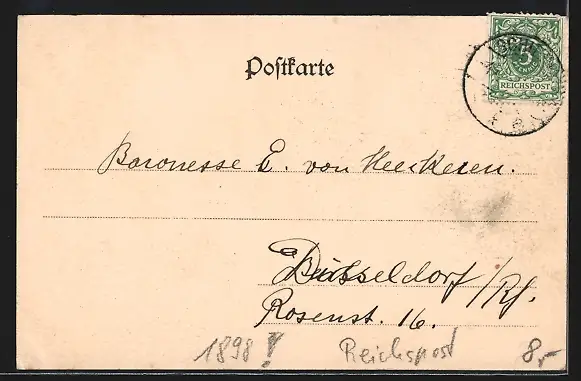 Postkarte
5
REICHSPOST
Baronesse E. von Heeckeren.
Düsseldorf/Rh.
Rosenst. 16.
1898! Reichspost 8,-